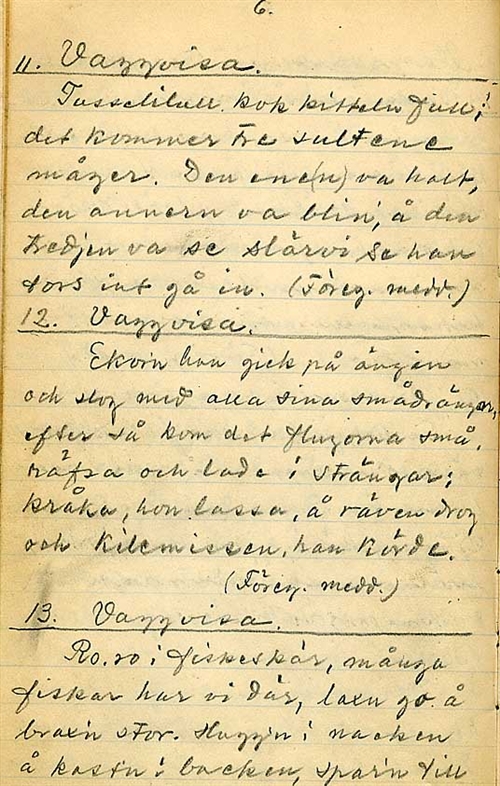 6.
11. Vaggvisa.
Tusselilull. kok kitteln full;
det kommer tre sultene
måger. Den ene(n) va halt,
den annern va blin', å den
tredjen va se slarvi se han
tors int gå in. (Föreg. medd.)
12. Vaggvisa.
Ekorn han gick på ängen
och slog med alla sina smådrängar,
efter så kom det flugorna små,
räfsa och lade i strängar;
kråka, hon lassa, å räven drog
och kilemissen, han körde.
(Föreg. medd.)
13. Vaggvisa.
Ro, ro i fiskeskär, många
fiskar har vi där, laxn go å
braxn stor. Huggn i nacken
å kastn i backen, sparn till